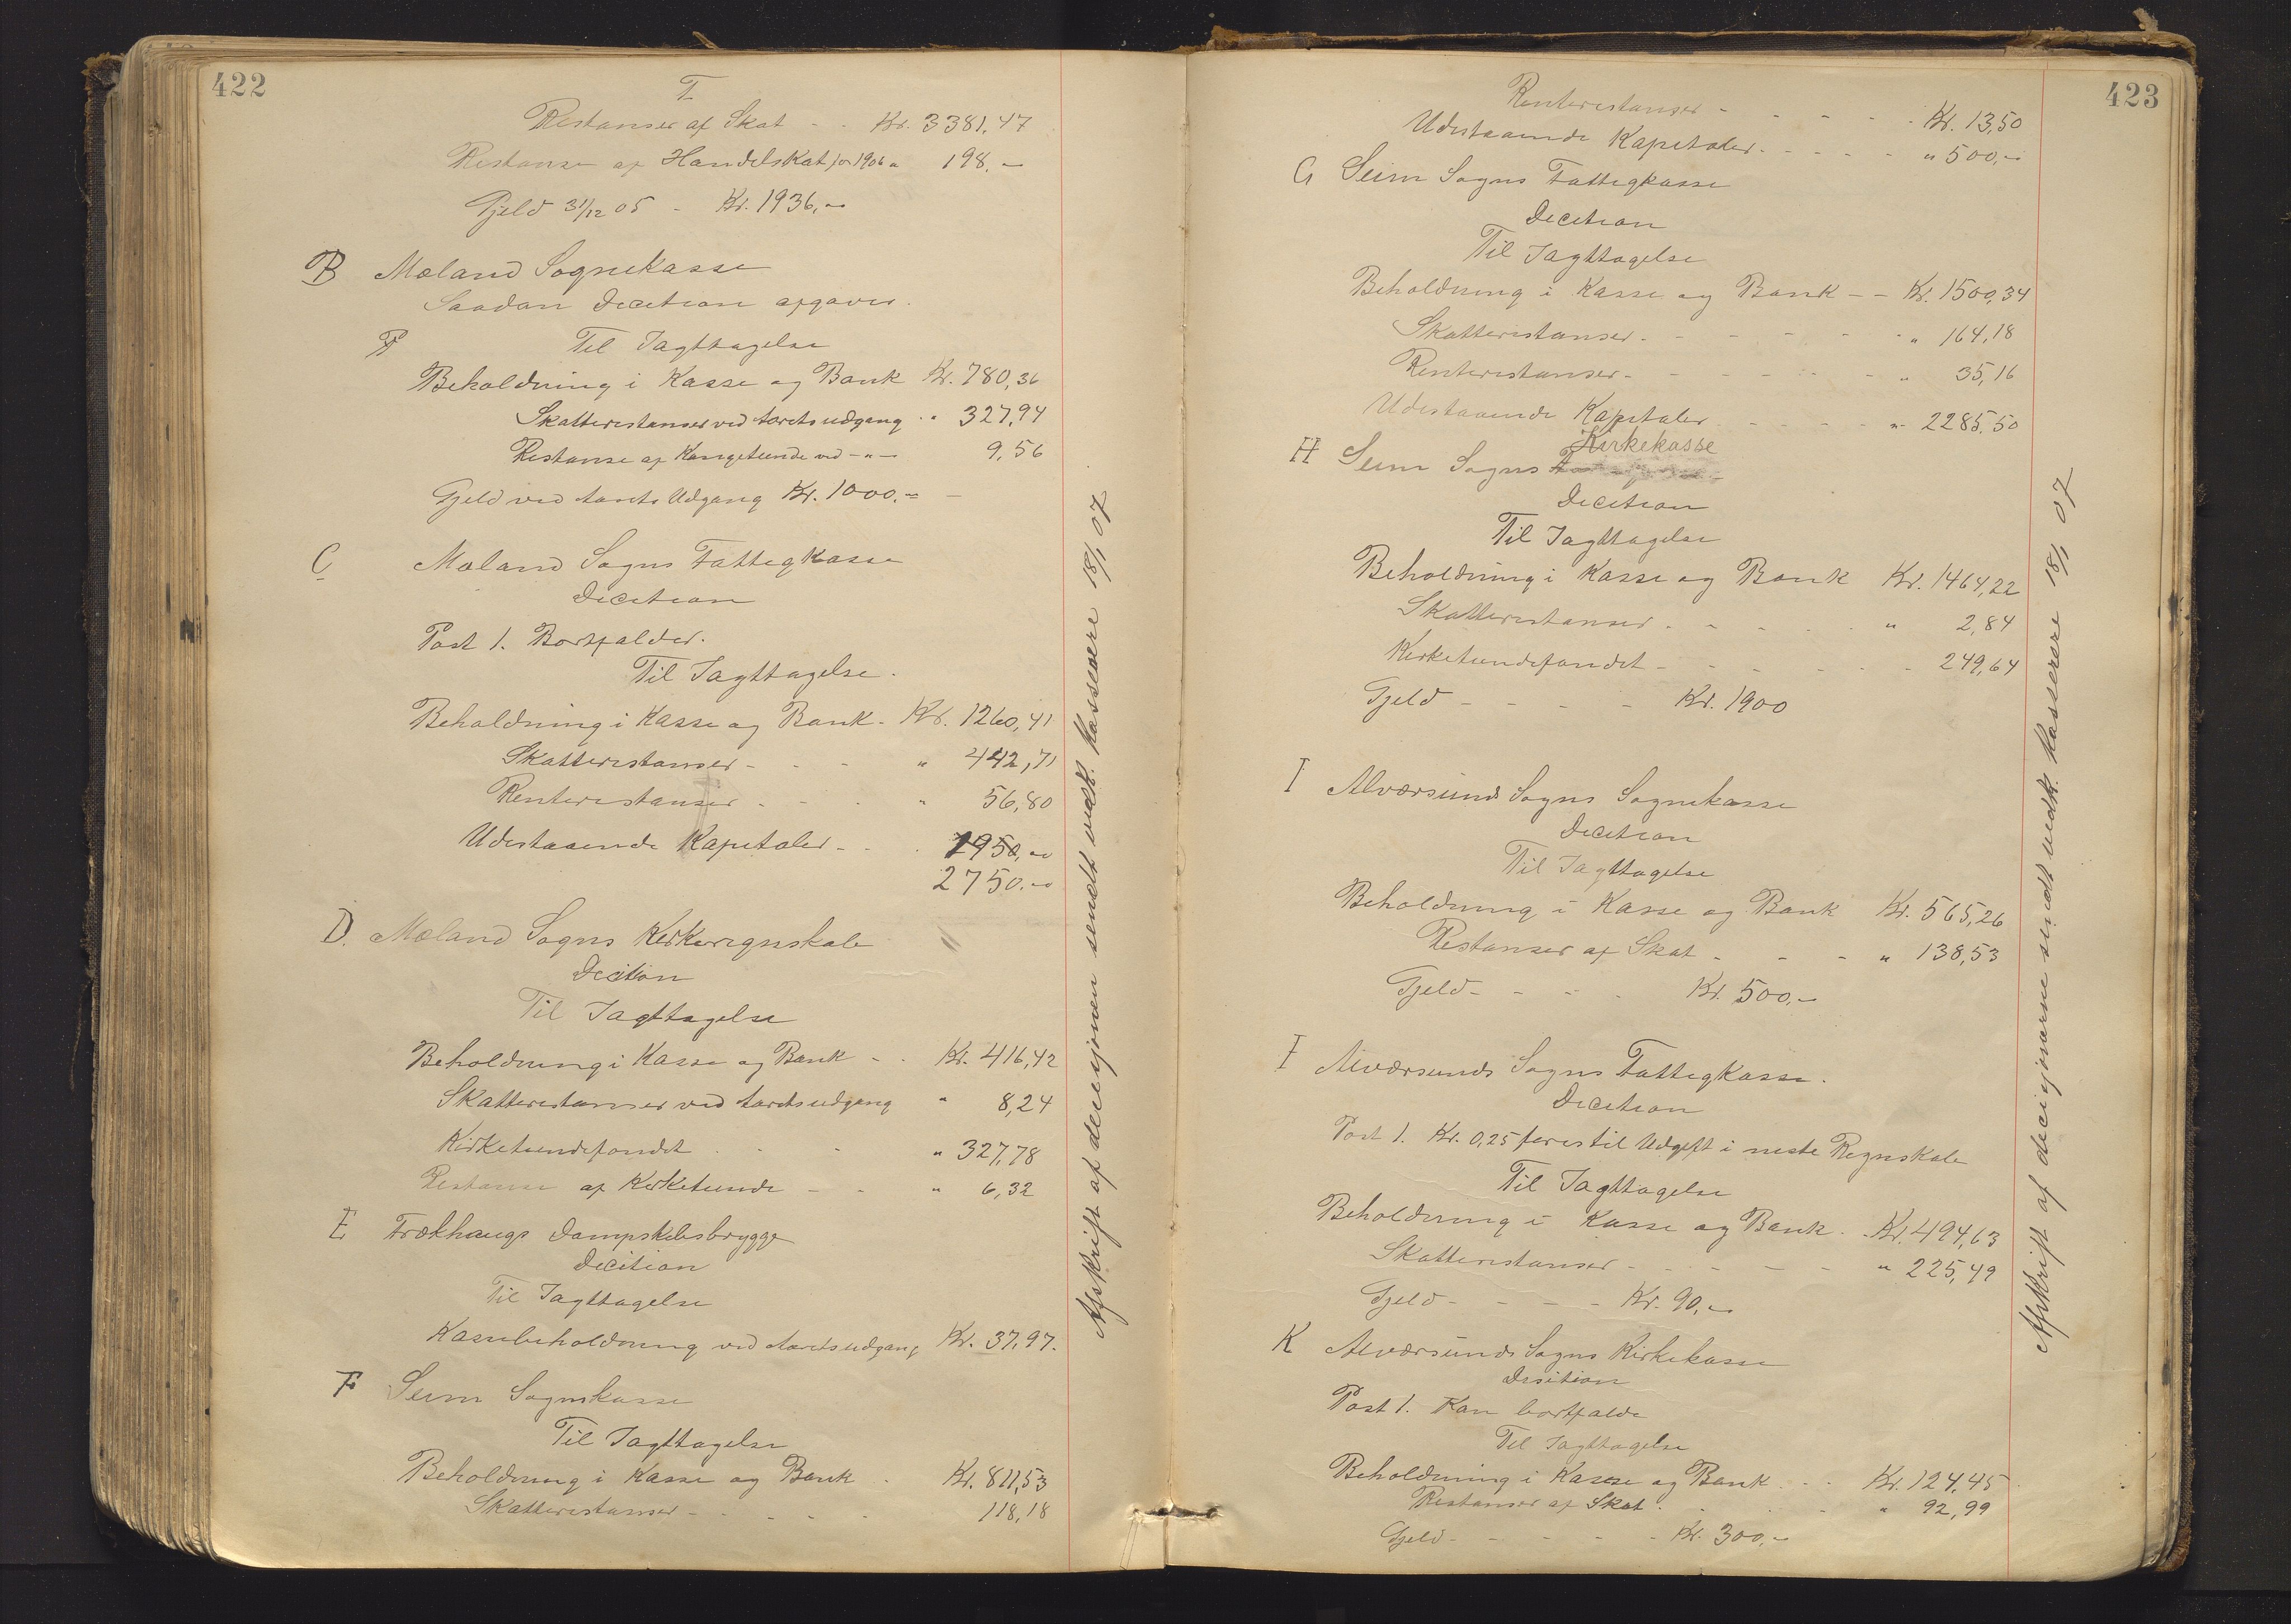 422
T
Restanser af Skat - - Kr. 3381,47
Restanse af Handelskat for 1906 " 198,-
Gjeld 31/12 05 - Kr. 1936,-
B Mæland Sognekasse
Saadan Decition afgaves.
Til Iagttagelse
Beholdning i Kasse og Bank Kr. 780,36
Skatterestanser ved Aarets udgang " 327,94
Restanse af Kongetiende ved -"- 9,56
Gjeld ved Aarets Udgang Kr. 1000.-
C Mæland Sogns Fattigkasse
Decition
Post 1. Bortfalder.
Til Iagttagelse.
Beholdning i Kasse og Bank - Kr. 1260,41
Skatterestanser - - - " 442,71
Renterestanser - - - " 56,80
Udestaaende Kapitaler - - 1950,-
2750.-
D. Mæland Sogns Kirkeregnskab
Decition
Til Iagttagelse
Beholdning i Kasse og Bank - - Kr. 416,42
Skatterestanser ved Aarets udgang " 8,24
Kirketiendefondet - - " 327,78
Restanse af Kirketiende - - " 6,32
E Frækhaugs Dampskibsbrygge
Decition
Til Iagttagelse
Kassebeholdning ved Aarets udgang Kr. 37,97.
F Seim Sognekasse
Til Iagttagelse
Beholdning i Kasse og Bank - Kr. 811,53
Skatterestanser - - - - - 118,18
Afskrift af decisjonen sendt vedk. kasserere 18/1 07
423
Renterestanser - - - - - Kr. 13,50
Udestaaende Kapitaler - - - - - " 500,-
G Seim Sogns Fattigkasse
Decition
Til Iagttagelse
Beholdning i Kasse og Bank - - Kr. 1500,34
Skatterestanser - - - - - " 164,18
Renterestanser - - - - - " 35,16
Udestaaende Kapitaler - - - - - " 2285.50
H Seim Sogns Kirkekasse
Decition
Til Iagttagelse
Beholdning i Kasse og Bank Kr. 1464,22
Skatterestanser - - - - - " 2,84
Kirketiendefondet - - - - - 249,64
Gjeld - - - - Kr. 1900
I Alværsunds Sogns Sognekasse
Decition
Til Iagttagelse
Beholdning i Kasse og Bank Kr. 565,26
Restanser af Skat - - - " 138,53
Gjeld - - - - Kr. 500,-
I Alværsunds Sogns Fattigkasse.
Decition
Post 1. Kr. 0,25 føres til Udgift i neste Regnskab
Til Iagttagelse
Beholdning i Kasse og Bank - Kr. 494,63
Skatterestanser - - - - - " 225,49
Gjeld - - - - Kr. 90,-
K Alværsunds Sogns Kirkekasse
Desition
Post 1. Kan bortfalde
Til Iagttagelse
Beholdning i Kasse og Bank - - - Kr. 124,45
Restanser af Skat - - - - " 92,99
Gjeld - - - - - Kr. 300,-
Afskrift af decisjonerne sendt vedk. kasserere 18/1 07